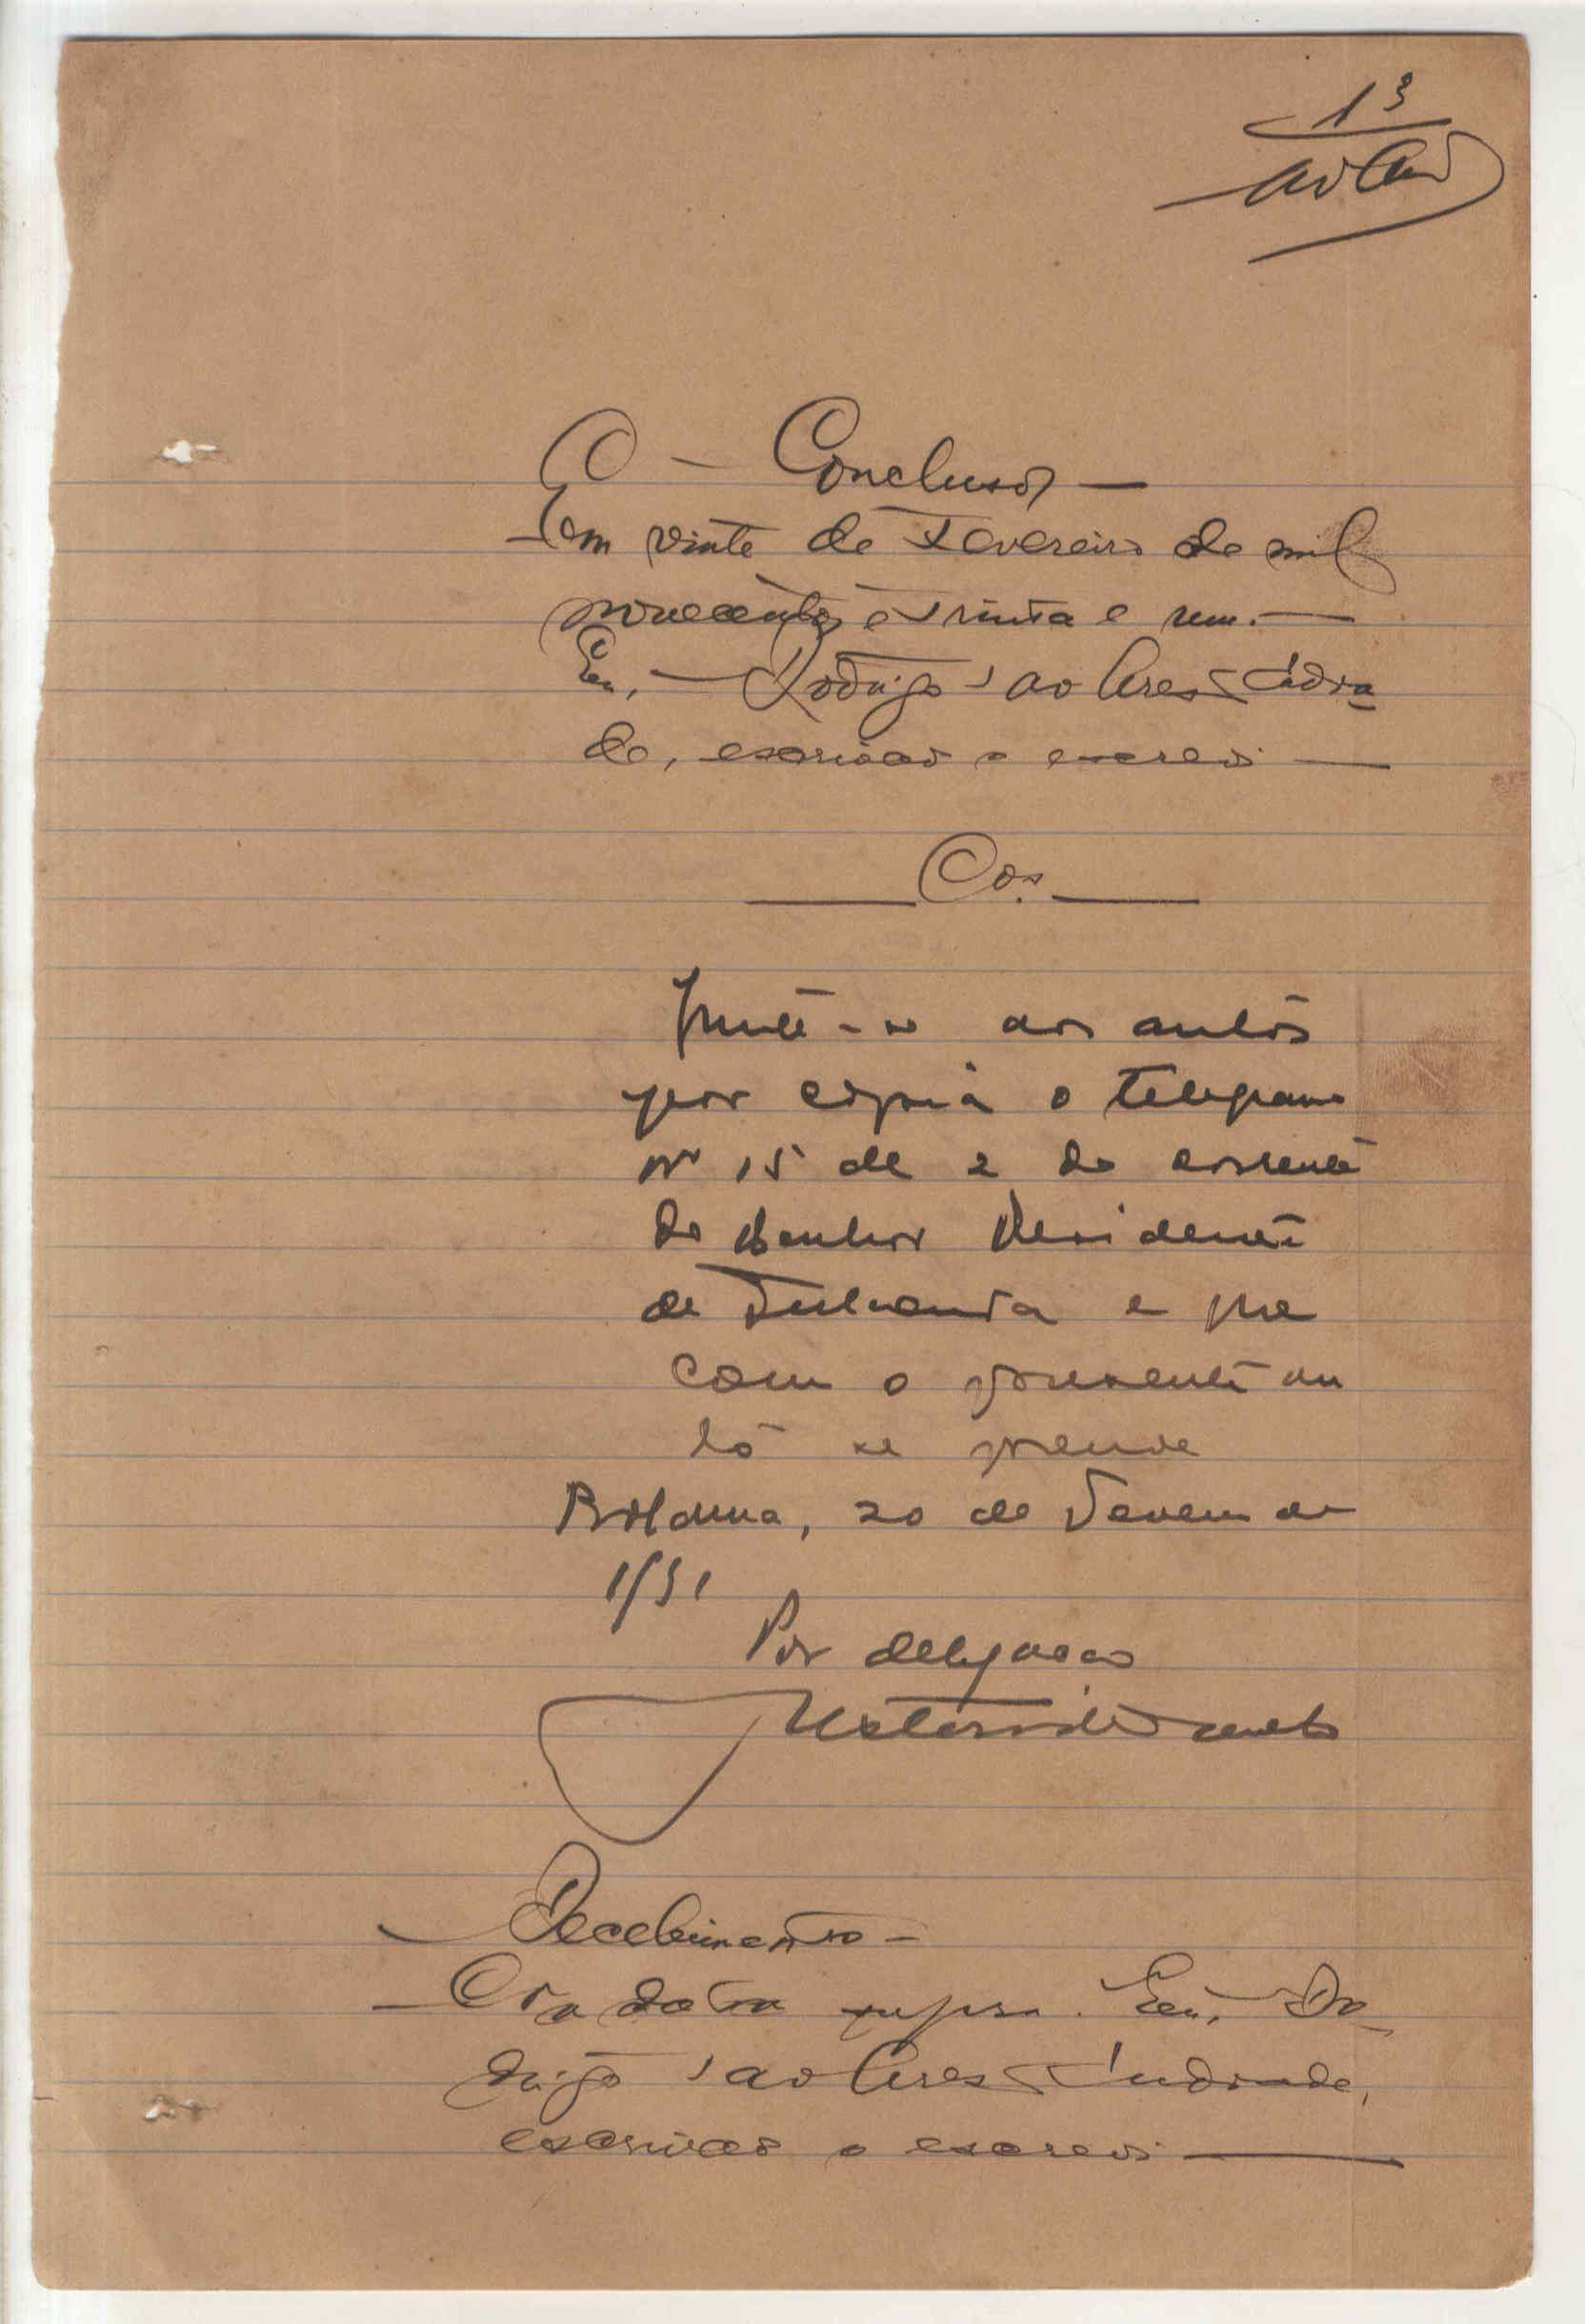 13
O - Conclusos -
Em vinte de Fevereiro de mil
novecentos e trinta e um. —
Eu, - Rodrigo Tavares Andra
de, escrivão o escrevi —
Cos.
Junte-se aos autos
por copia o telegrama
nº 15 de 2 do corrente
do Senhor Presidente
de
com o presente au
to se prende
20 de de
1931
Por delegacao
Recebimento -
Era data supra. Eu, Ro-
drigo Tavares Andrade,
escrivão o escrevi —